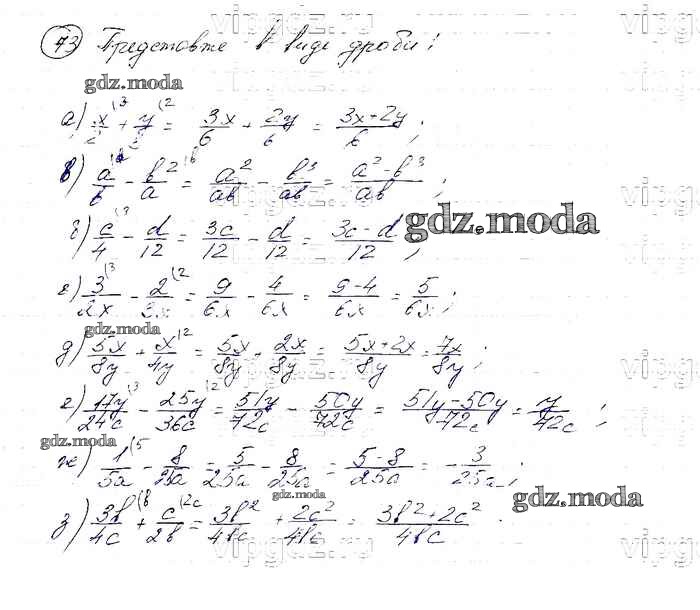 73 Представте в виде дроби:
gdz.moda
а) x/2 (3 + y/3 (2 = 3x/6 + 2y/6 = (3x+2y)/6 ;
в) a/b (a - b²/a (b = a²/ab - b³/ab = (a²-b³)/ab ;
б) c/4 (3 - d/12 = 3c/12 - d/12 = (3c-d)/12 ;
gdz.moda
г) 3/2x (3 - 2/3x (2 = 9/6x - 4/6x = (9-4)/6x = 5/6x ;
gdz.moda
д) 5x/8y + x/4y (2 = 5x/8y + 2x/8y = (5x+2x)/8y = 7x/8y ;
е) 17y/24c (3 - 25y/36c (2 = 51y/72c - 50y/72c = (51y-50y)/72c = y/72c ;
gdz.moda
ж) 1/5a (5 - 8/25a = 5/25a - 8/25a = (5-8)/25a = -3/25a ;
gdz.moda
gdz.moda
з) 3b/4c (b + c/2b (2c = 3b²/4bc + 2c²/4bc = (3b²+2c²)/4bc .
gdz.moda